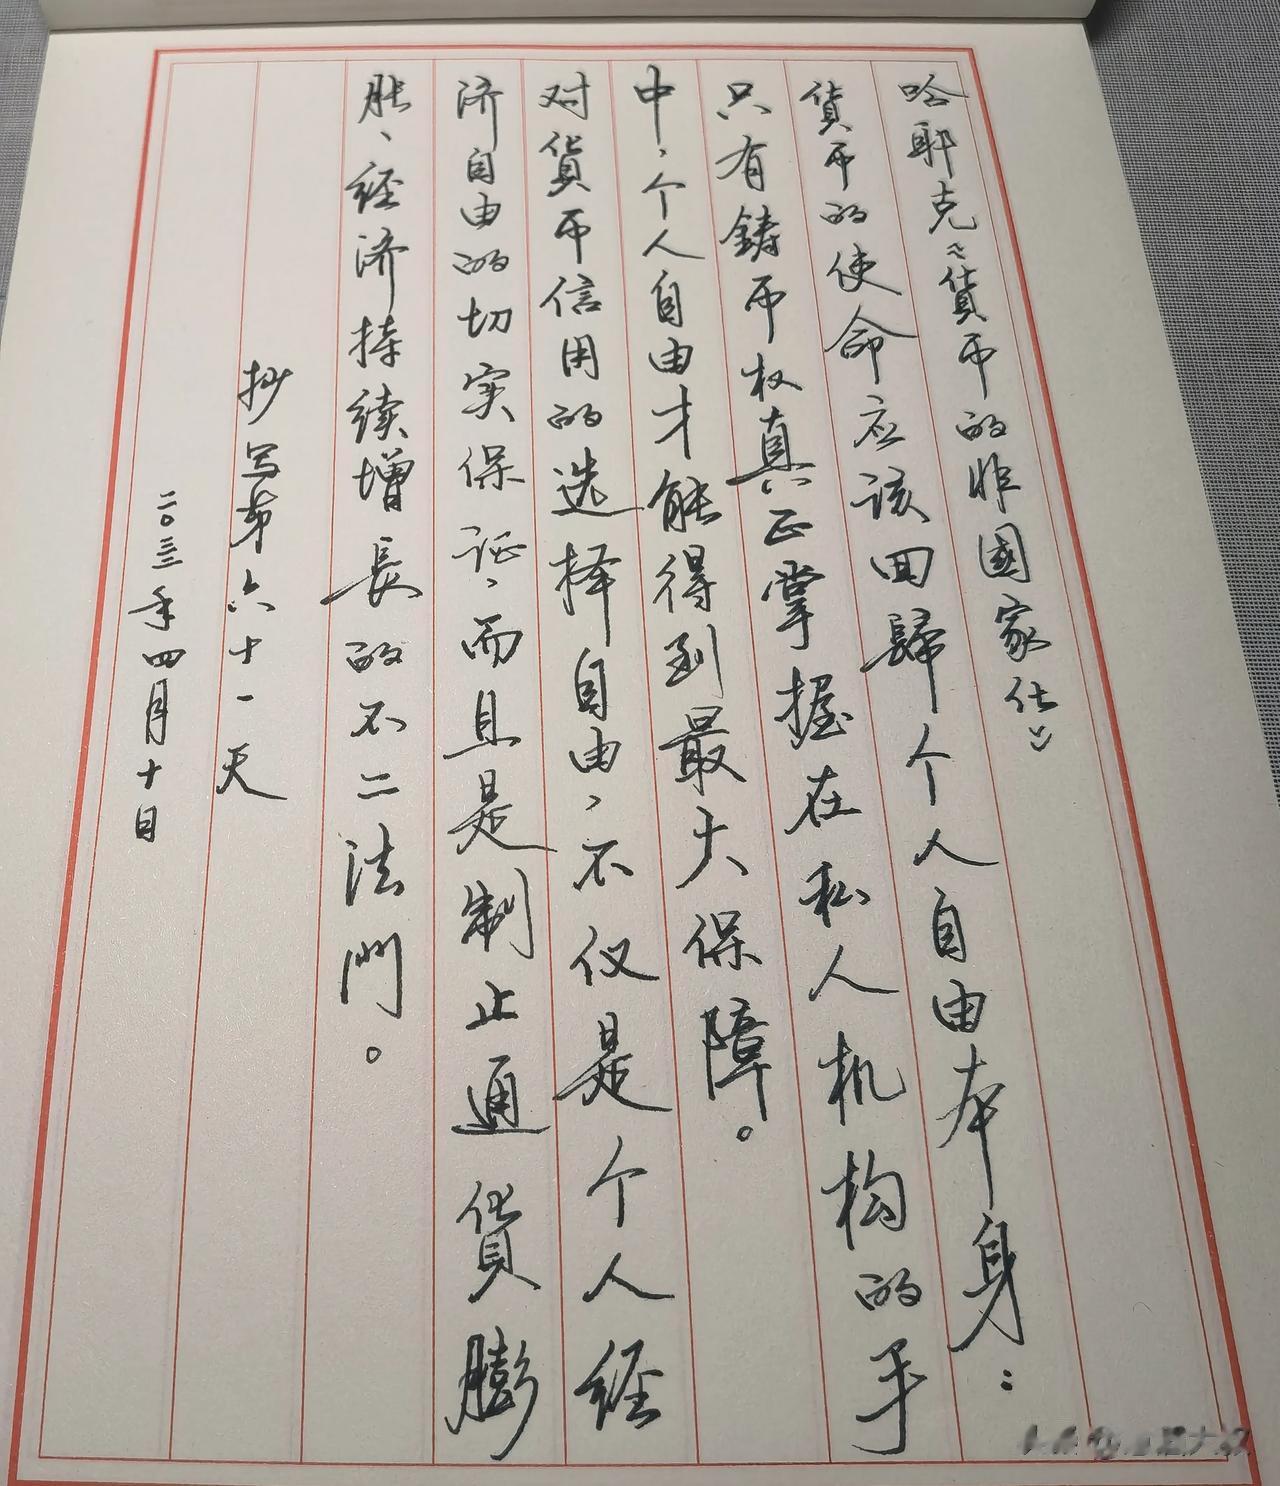 哈耶克《貨币的非國家化》
貨币的使命应该回歸个人自由本身：
只有鋳币权真正掌握在私人机构的手
中，个人自由才能得到最大保障。
对貨币信用的选择自由，不仅是个人经
济自由的切实保证，而且是制止通貨膨
胀、经济持续增長的不二法門。
抄写第六十一天
二〇二三年四月十日